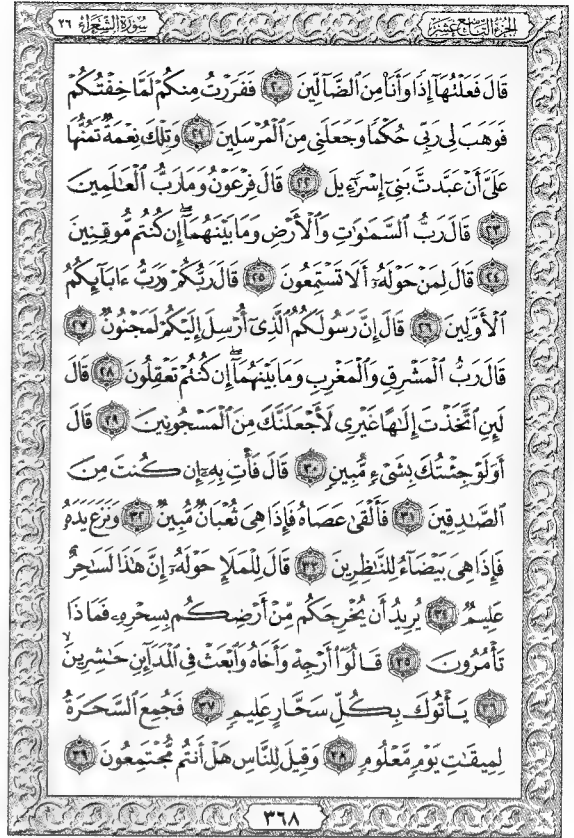 الجزء التاسع عشر
سورة الشعراء ٢٦
قَالَ فَعَلْتُهَآ إِذًا وَأَنَا۠ مِنَ ٱلضَّآلِّينَ ٢٠ فَفَرَرْتُ مِنكُمْ لَمَّا خِفْتُكُمْ
فَوَهَبَ لِى رَبِّى حُكْمًا وَجَعَلَنِى مِنَ ٱلْمُرْسَلِينَ ٢١ وَتِلْكَ نِعْمَةٌ تَمُنُّهَا
عَلَىَّ أَنْ عَبَّدتَّ بَنِىٓ إِسْرَٰٓءِيلَ ٢٢ قَالَ فِرْعَوْنُ وَمَا رَبُّ ٱلْعَٰلَمِينَ
٢٣ قَالَ رَبُّ ٱلسَّمَٰوَٰتِ وَٱلْأَرْضِ وَمَا بَيْنَهُمَآ ۖ إِن كُنتُم مُّوقِنِينَ
٢٤ قَالَ لِمَنْ حَوْلَهُۥٓ أَلَا تَسْتَمِعُونَ ٢٥ قَالَ رَبُّكُمْ وَرَبُّ ءَابَآئِكُمُ
ٱلْأَوَّلِينَ ٢٦ قَالَ إِنَّ رَسُولَكُمُ ٱلَّذِىٓ أُرْسِلَ إِلَيْكُمْ لَمَجْنُونٌ ٢٧
قَالَ رَبُّ ٱلْمَشْرِقِ وَٱلْمَغْرِبِ وَمَا بَيْنَهُمَآ ۖ إِن كُنتُمْ تَعْقِلُونَ ٢٨ قَالَ
لَئِنِ ٱتَّخَذْتَ إِلَٰهًا غَيْرِى لَأَجْعَلَنَّكَ مِنَ ٱلْمَسْجُونِينَ ٢٩ قَالَ
أَوَلَوْ جِئْتُكَ بِشَىْءٍ مُّبِينٍ ٣٠ قَالَ فَأْتِ بِهِۦٓ إِن كُنتَ مِنَ
ٱلصَّٰدِقِينَ ٣١ فَأَلْقَىٰ عَصَاهُ فَإِذَا هِىَ ثُعْبَانٌ مُّبِينٌ ٣٢ وَنَزَعَ يَدَهُۥ
فَإِذَا هِىَ بَيْضَآءُ لِلنَّٰظِرِينَ ٣٣ قَالَ لِلْمَلَإِ حَوْلَهُۥٓ إِنَّ هَٰذَا لَسَٰحِرٌ
عَلِيمٌ ٣٤ يُرِيدُ أَن يُخْرِجَكُم مِّنْ أَرْضِكُم بِسِحْرِهِۦ فَمَاذَا
تَأْمُرُونَ ٣٥ قَالُوٓا۟ أَرْجِهْ وَأَخَاهُ وَٱبْعَثْ فِى ٱلْمَدَآئِنِ حَٰشِرِينَ
٣٦ يَأْتُوكَ بِكُلِّ سَحَّارٍ عَلِيمٍ ٣٧ فَجُمِعَ ٱلسَّحَرَةُ
لِمِيقَٰتِ يَوْمٍ مَّعْلُومٍ ٣٨ وَقِيلَ لِلنَّاسِ هَلْ أَنتُم مُّجْتَمِعُونَ ٣٩
٣٦٨